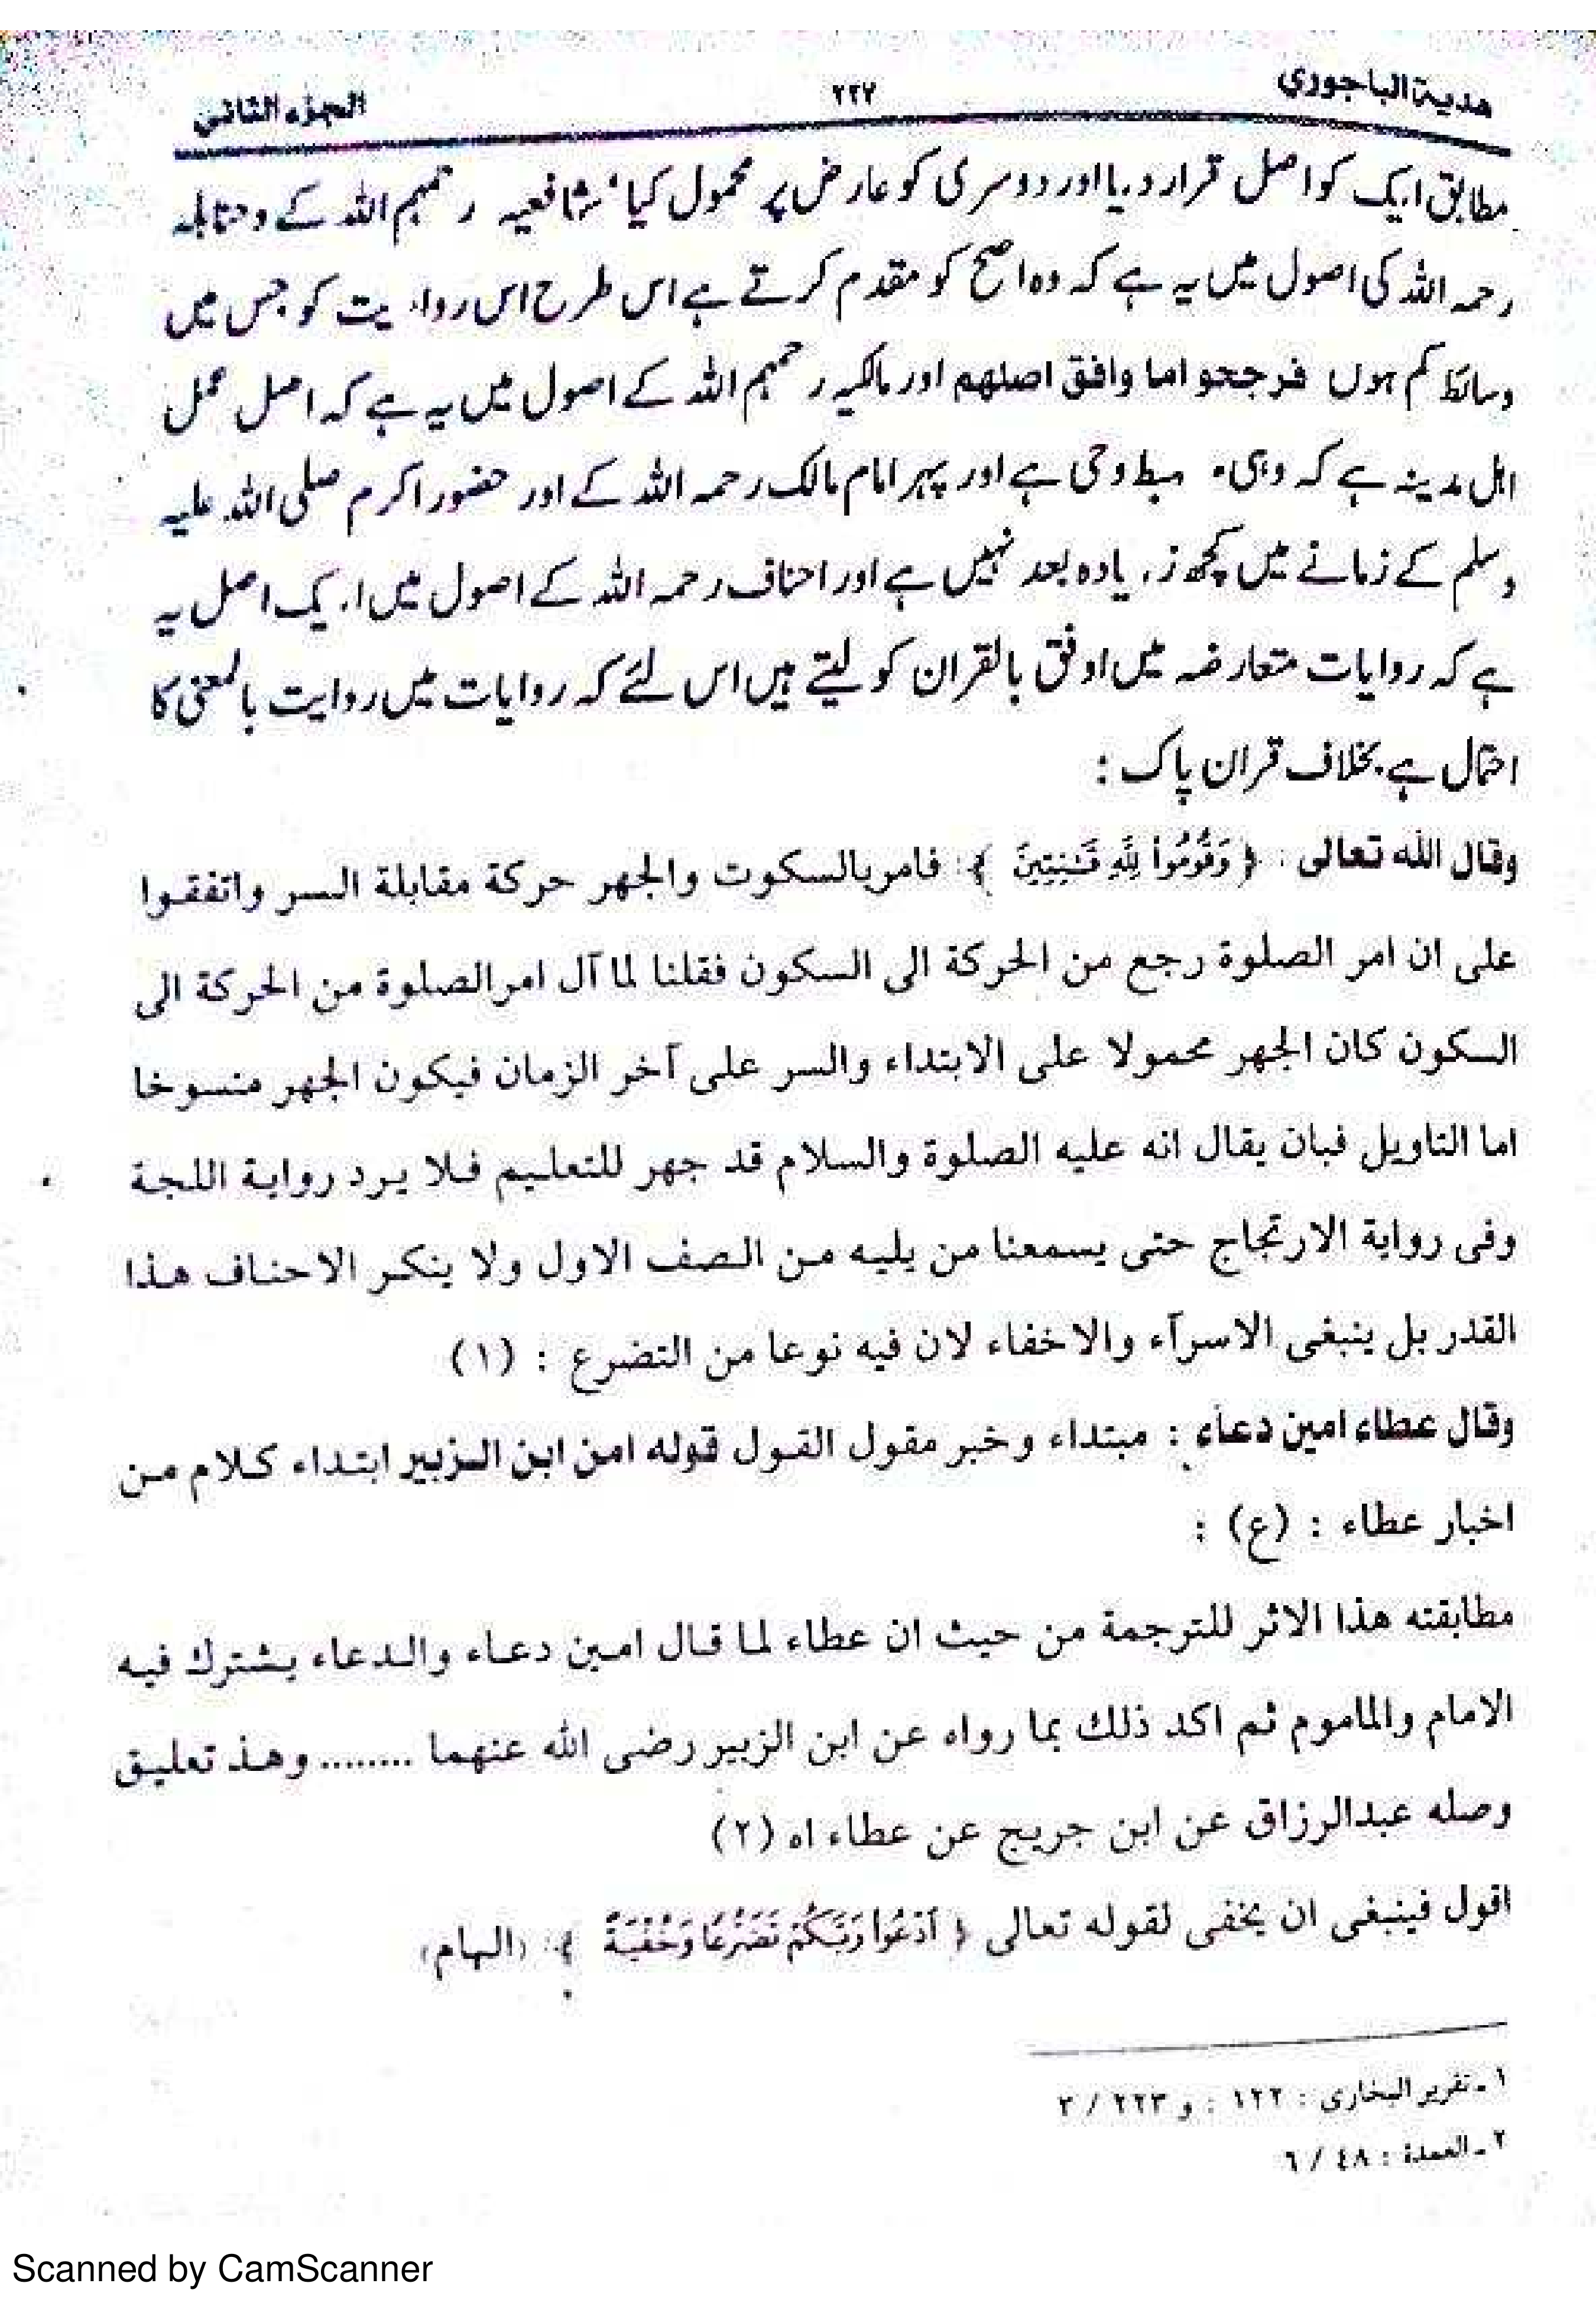 هدية الباجوري ٢٢٧ الجزء الثانى
مطابق ایک کو اصل قرار دیا اور دوسری کو عارض پر محمول کیا، شافعیہ رحمہم اللہ کے وحنابلہ
رحمہ اللہ کی اصول میں یہ ہے کہ وہ اصح کو مقدم کرتے ہے اس طرح اس روایت کو جس میں
وسائط کم ہوں فرجحوا ما وافق اصلهم اور مالکیہ رحمہم اللہ کے اصول میں یہ ہے کہ اصل عمل
اہل مدینہ ہے کہ وہی مہبط وحی ہے اور پہر امام مالک رحمہ اللہ کے اور حضور اکرم صلی اللہ علیہ
وسلم کے زمانے میں کچھ زیادہ بعد نہیں ہے اور احناف رحمہ اللہ کے اصول میں ایک اصل یہ
ہے کہ روایات متعارضہ میں اوفق بالقران کو لیتے ہیں اس لئے کہ روایات میں روایت بالمعنی کا
احتمال ہے بخلاف قران پاک :
وقال الله تعالى : ﴿ وَقُومُوا۟ لِلَّهِ قَـٰنِتِينَ ﴾: فامر بالسكوت والجهر حركة مقابلة السر واتفقوا
على ان امر الصلوة رجع من الحركة الى السكون فقلنا لما آل امر الصلوة من الحركة الى
السكون كان الجهر محمولا على الابتداء والسر على آخر الزمان فيكون الجهر منسوخا
اما التاويل فبان يقال انه عليه الصلوة والسلام قد جهر للتعليم فلا يرد رواية اللجة
وفى رواية الارتجاج حتى يسمعنا من يليه من الصف الاول ولا ينكر الاحناف هذا
القدر بل ينبغى الاسرآء والاخفاء لان فيه نوعا من التضرع : (١)
وقال عطاء امين دعاء : مبتداء وخبر مقول القول قوله امن ابن الزبير ابتداء كلام من
اخبار عطاء : (ع) :
مطابقته هذا الاثر للترجمة من حيث ان عطاء لما قال امين دعاء والدعاء يشترك فيه
الامام والماموم ثم اكد ذلك بما رواه عن ابن الزبير رضى الله عنهما ........ وهذ تعليق
وصله عبدالرزاق عن ابن جريج عن عطاء اه (٢)
اقول فينبغى ان يخفى لقوله تعالى ﴿ ٱدْعُوا۟ رَبَّكُمْ تَضَرُّعًا وَخُفْيَةً ﴾: (الهام)
١ ـ تقرير البخارى : ١٢٢ : و ٢٢٣ / ٢
٢ ـ العمدة : ٤٨ / ٦
Scanned by CamScanner